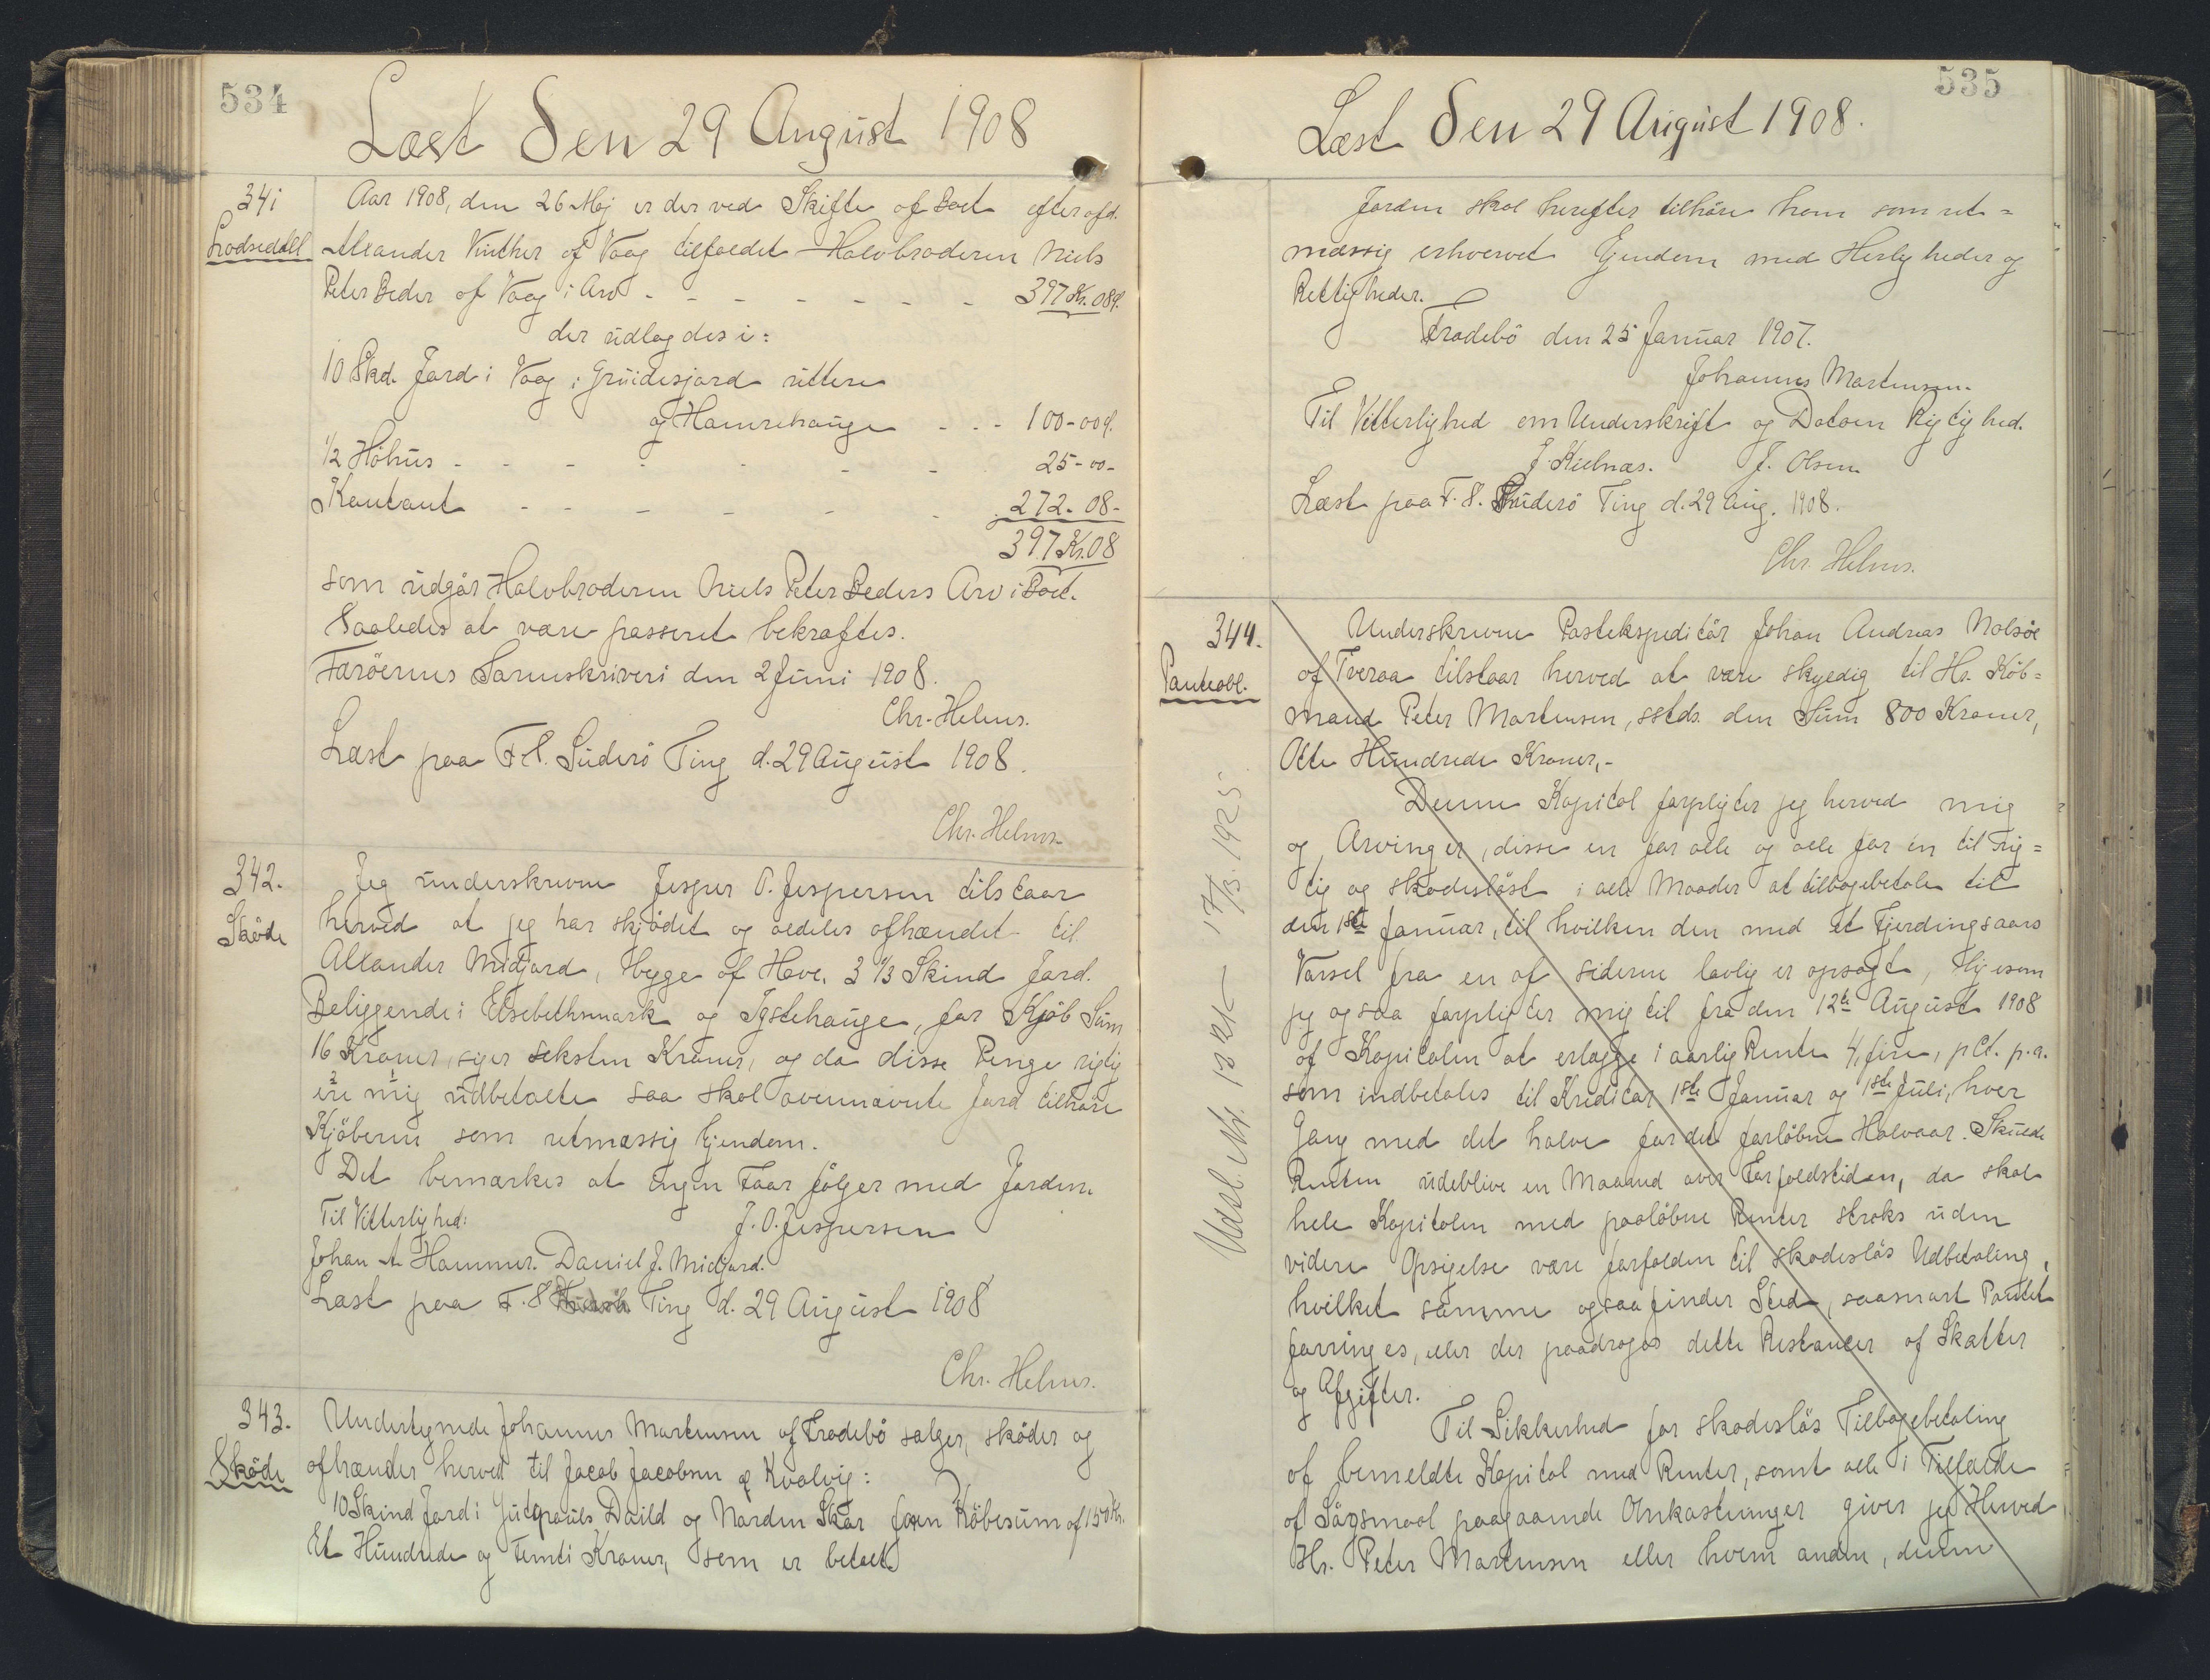 534
Læst Den 29 August 1908
341
Lodseddel
Aar 1908, den 26 Maj er der ved Skifte af Boet efter afd.
Alexander Vinther af Vaag tilfaldet Halvbroderen Niels
Peter Beder af Vaag i Arv - - - - - - - 397 Kr. 08 Ø.
der udlagdes i:
10 Skd. Jord i Vaag i Gruidesjord uttere
og Hamrehauge - - - 100-00 Ø.
1/2 Höhus - - - - - - - 25-00-
Kontant - - - - - - - 272.08-
397 Kr. 08
som udgör Halvbroderen Niels Peter Beders Arv i Boet.
Saaledes at være passeret bekræftes.
Færöernes Sorenskriveri den 2 Juni 1908.
Chr. Helms.
Læst paa F. S. Suderö Ting d. 29 August 1908.
Chr. Helms.
342.
Sköde
Jeg underskrevne Jesper O. Jespersen tilstaar
herved at jeg har skjödet og aldeles afhændet til
Alexander Midjord, Bygge af Hove, 3 1/3 Skind Jord.
Beliggende i Elsebethsmark og Igstehauge, for Kjöb Sum
16 Kroner, siger seksten Kroner, og da disse Penge rigtig
ere mig udbetalte saa skal ovennævnte Jord tilhöre
Kjöberen som retmæssig Ejendom.
Det bemærkes at ingen Faar fölger med Jorden.
Til Vitterlighed: J. O. Jespersen
Johan A. Hammer. Daniel J. Midjord.
Læst paa F. S. Suderö Ting d. 29 August 1908
Chr. Helms.
343.
Sköde
Undertegnede Johannes Martensen af Frodebö sælger, sköder og
afhænder herved til Jacob Jacobsen af Kvalvig:
10 Skind Jord i Daild og Norden Skor for en Köbesum af 150 Kr.
Et Hundrede og Femti Kroner, som er betalt.
535
Læst Den 29 August 1908.
Jorden skal herefter tilhöre ham som ret=
mæssig erhvervet Ejendom med Herligheder og
Rettigheder.
Frodebö den 25 Januar 1907.
Johannes Martensen.
Til Vitterlighed om Underskrift og Datoen Rigtighed.
J. Kielnæs. J. Olsen
Læst paa F. S. Suderö Ting d. 29 Aug. 1908.
Chr. Helms.
344.
Panteobl.
Udsl. 17/3 1925
Underskrevne Postekspeditör Johan Andreas Nolsöe
af Tveraa tilstaar herved at være skyldig til Hr. Köb=
mand Peter Mortensen, sstds. den Sum 800 Kroner,
Otte Hundrede Kroner,-
Denne Kapital forpligter jeg herved mig
og Arvinger, disse en for alle og alle for en til rig=
tig og skadeslöst i alle Maader at tilbagebetale til
den 1ste Januar, til hvilken den med et Fjerdingsaars
Varsel fra en af siderne lovlig er opsagt, ligesom
jeg ogsaa forpligter mig til fra den 12te August 1908
af Kapitalen at erlægge i aarlig Rente 4, fire, pCt. p.a.
som indbetales til Kreditor 1ste Januar og 1ste Juli, hver
Gang med det halve for det forlöbne Halvaar. Skulde
Renten udeblive en Maaned over Forfaldstiden, da skal
hele Kapitalen med paalöbne Renter straks uden
videre Opsigelse være forfalden til skadeslös Udbetaling,
hvilket samme ogsaa finder Sted, saasnart Pantet
forringes, eller der paadrages dette Restancer af Skatter
og Afgifter.
Til Sikkerhed for skadeslös Tilbagebetaling
af bemeldte Kapital med Renter, samt alle i Tilfælde
af Sögsmaal paagaaende Omkostninger giver jeg Herved
Hr. Peter Mortensen eller hvem anden, denne